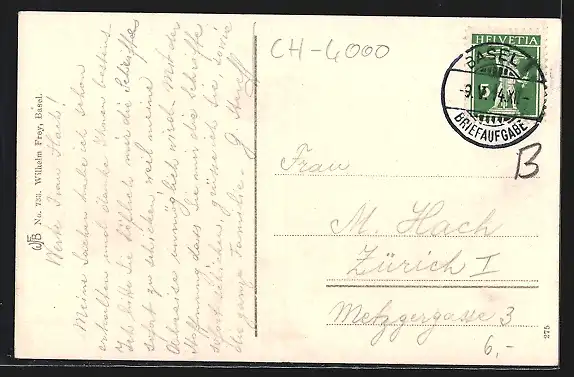 CH-4000
HELVETIA
BASEL 1
BRIEFAUFGABE
B
Frau
M. Hach
Zürich I
Metzgergasse 3
6,-
275
WFB No. 733. Wilhelm Frey, Basel.
Werte Frau Hach!
Meine Sachen habe ich schon
erhalten und danke Ihnen bestens.
Ich bitte Sie höflich mir die Schriften
sofort zu schicken weil meine
unmöglich wird. Mit der
Hoffnung dass Sie mir die Schriften
sofort schicken, grüsse ich Sie, sowie
die ganze Familie. G.